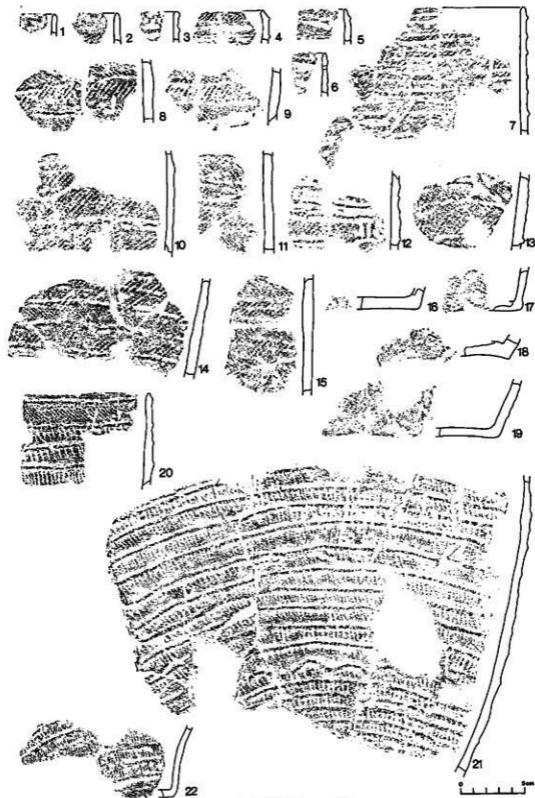 1 2 3 4 5
6
7
8 9
10 11 12 13
14 15 16 17
18
19
20
21
22
0 5cm